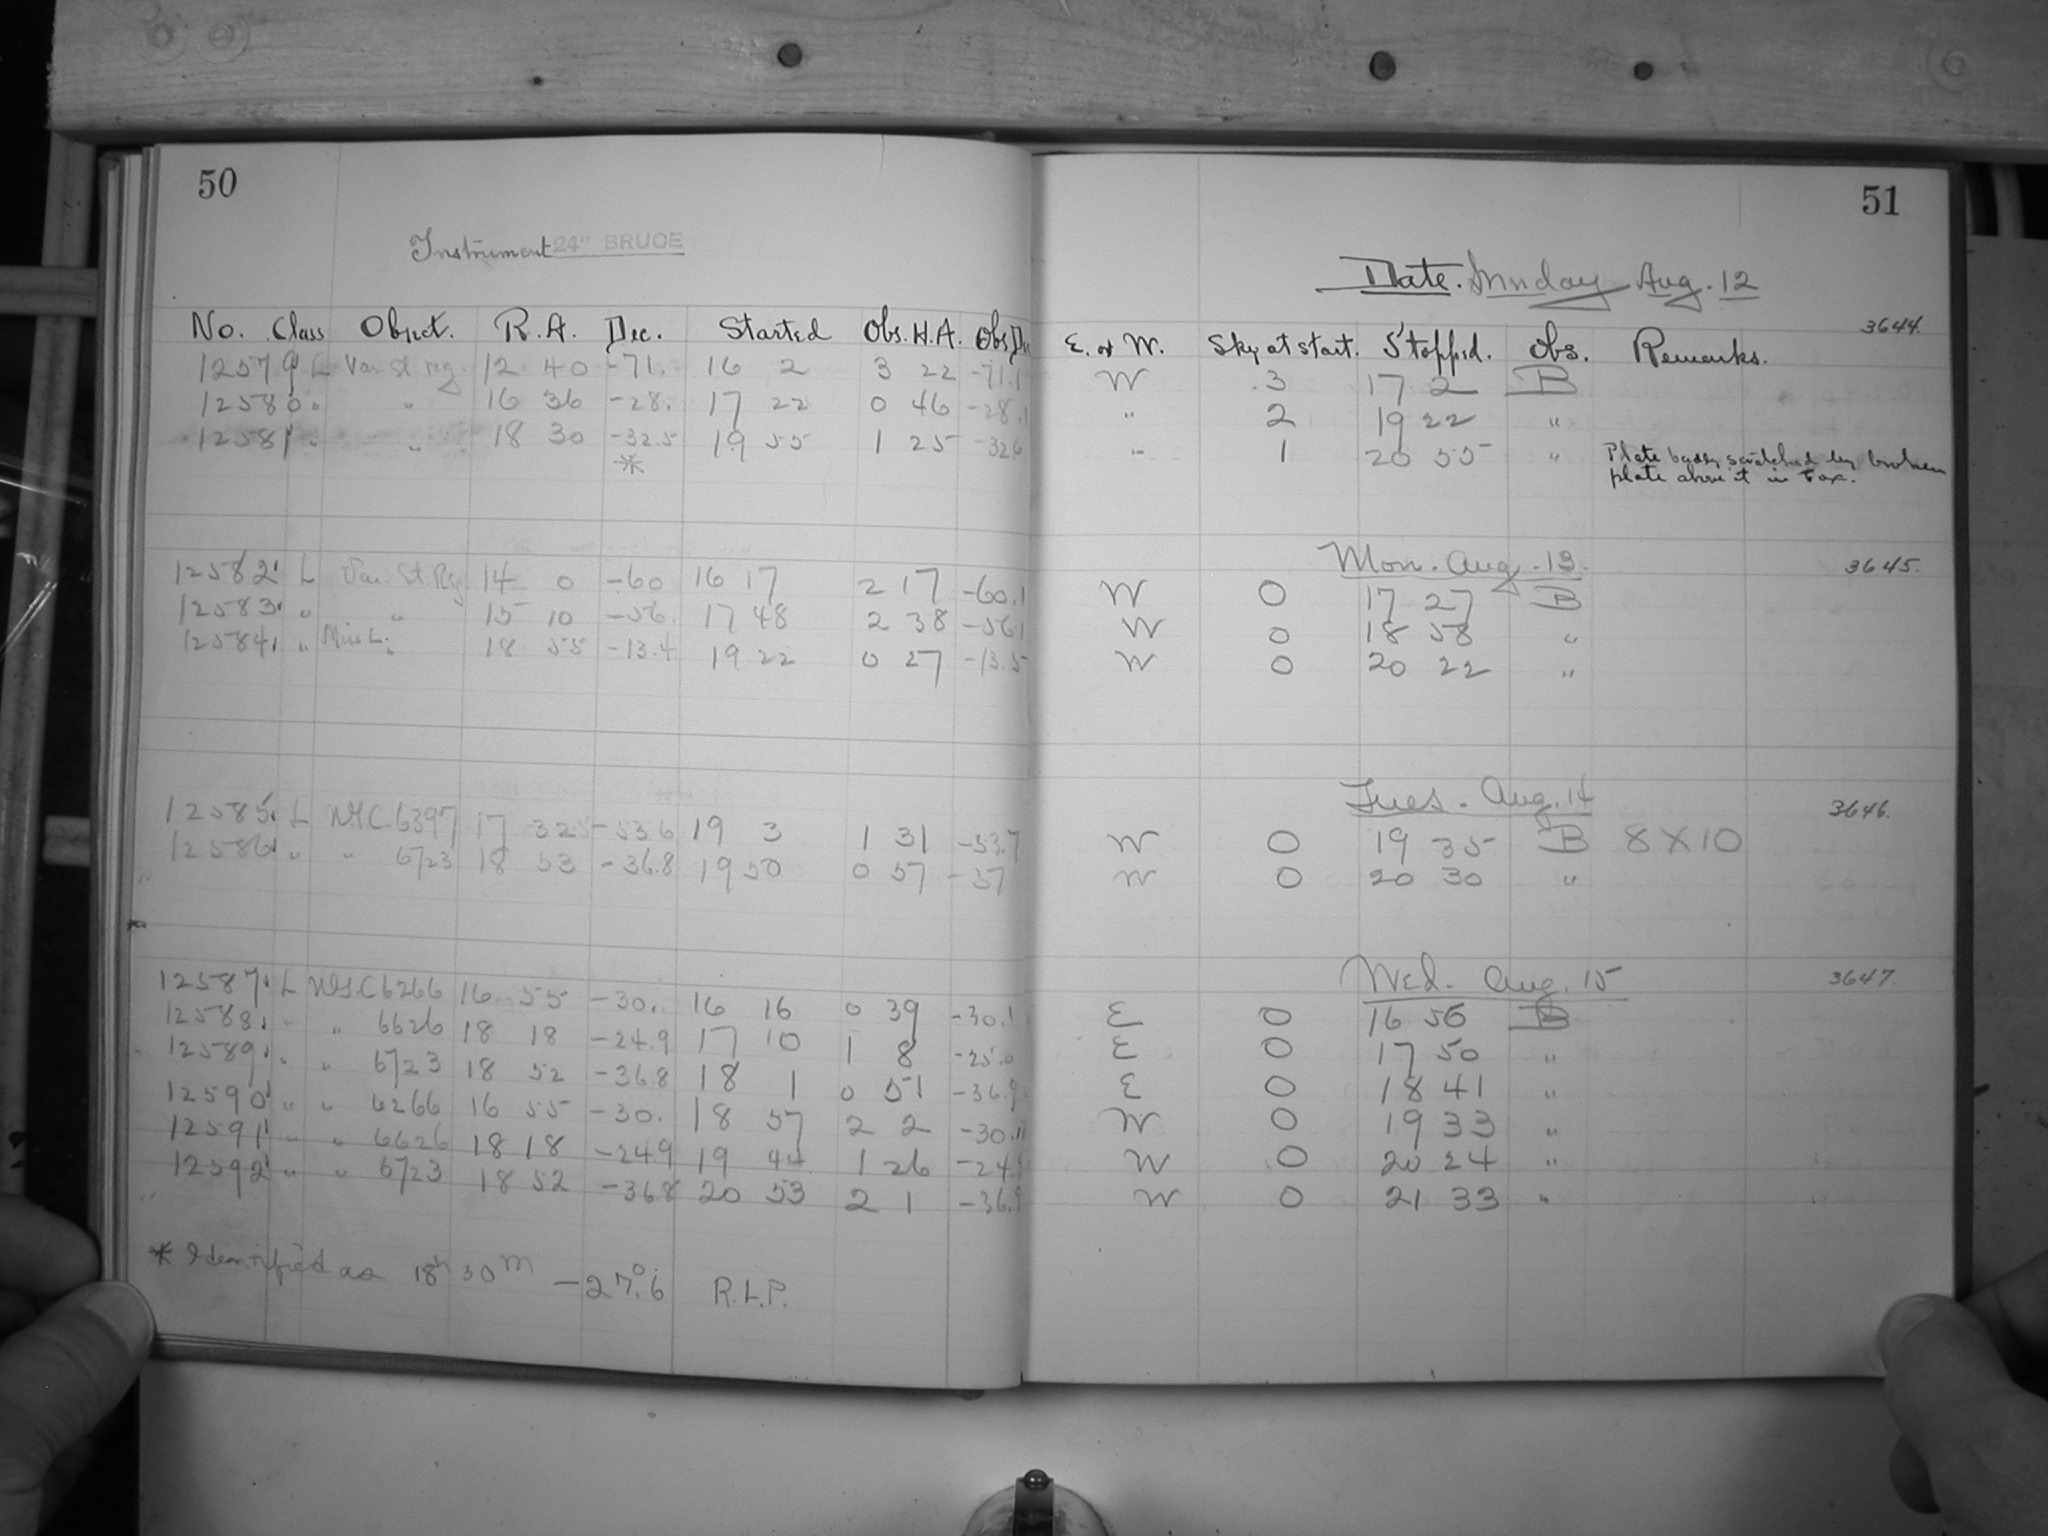 50
51
Instrument 24" BRUCE
Date. Sunday Aug. 12
No. Class Object. R.A. Dec. Started Obs. H.A. Obs. Dec E. or W. Sky at start. Stopped. Obs. Remarks. 3644.
12579 L Var. St. reg. 12 40 -71. 16 2 3 22 -71.1 W 3 17 2 B
12580 " " 16 36 -28. 17 22 0 46 -28.1 " 2 19 22 "
12581 " " 18 30 -32.5 19 55 1 25 -32.6 " 1 20 55 " Plate badly scratched by broken
* plate above it in box.
Mon. Aug. 13. 3645.
12582 L Var. St. Reg 14 0 -60 16 17 2 17 -60.1 W 0 17 27 B
12583 " " 15 10 -56. 17 48 2 38 -56.1 W 0 18 58 "
12584 " Miss L. 18 55 -13.4 19 22 0 27 -13.5 W 0 20 22 "
Tues. Aug. 14 3646.
12585 L N.G.C. 6397 17 32.5 -53.6 19 3 1 31 -53.7 W 0 19 35 B 8 X 10
12586 " " 6723 18 53 -36.8 19 50 0 57 -37 W 0 20 30 "
Wed. Aug. 15 3647.
12587 L N.G.C 6266 16 55 -30. 16 16 0 39 -30.1 E 0 16 56 B
12588 " " 6626 18 18 -24.9 17 10 1 8 -25.0 E 0 17 50 "
12589 " " 6723 18 52 -36.8 18 1 0 51 -36.9 E 0 18 41 "
12590 " " 6266 16 55 -30. 18 57 2 2 -30.1 W 0 19 33 "
12591 " " 6626 18 18 -24.9 19 44 1 26 -24. W 0 20 24 "
12592 " " 6723 18 52 -36.8 20 53 2 1 -36.9 W 0 21 33 "
* Identified as 18h 30m -27°.6 R.L.P.